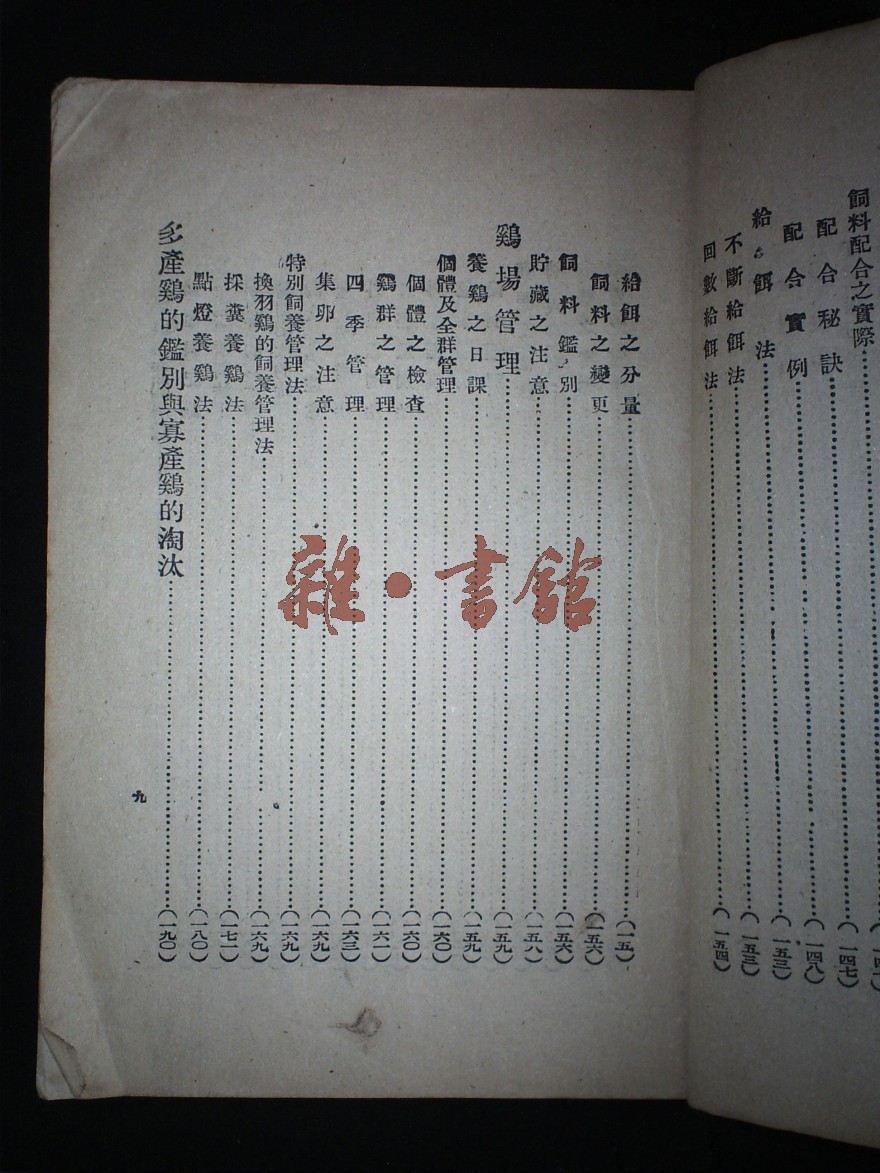 飼料配合之實際
(一四七)
配合秘訣
(一四八)
配合實例
(一五三)
給餌法
(一五三)
不斷給餌法
(一五四)
回數給餌法
給餌之分量
飼料之變更
(一五六)
飼料鑑別
(一五六)
貯藏之注意
(一五八)
鷄場管理
(一五九)
養鷄之日課
(一五九)
個體及全群管理
(一六〇)
個體之檢查
(一六〇)
鷄群之管理
(一六一)
四季管理
(一六三)
集卵之注意
(一六九)
特別飼養管理法
(一六九)
換羽鷄的飼養管理法
(一六九)
採糞養鷄法
(一七一)
點燈養鷄法
(一八〇)
多產鷄的鑑別與寡產鷄的淘汰
(一九〇)
九
雜·書館